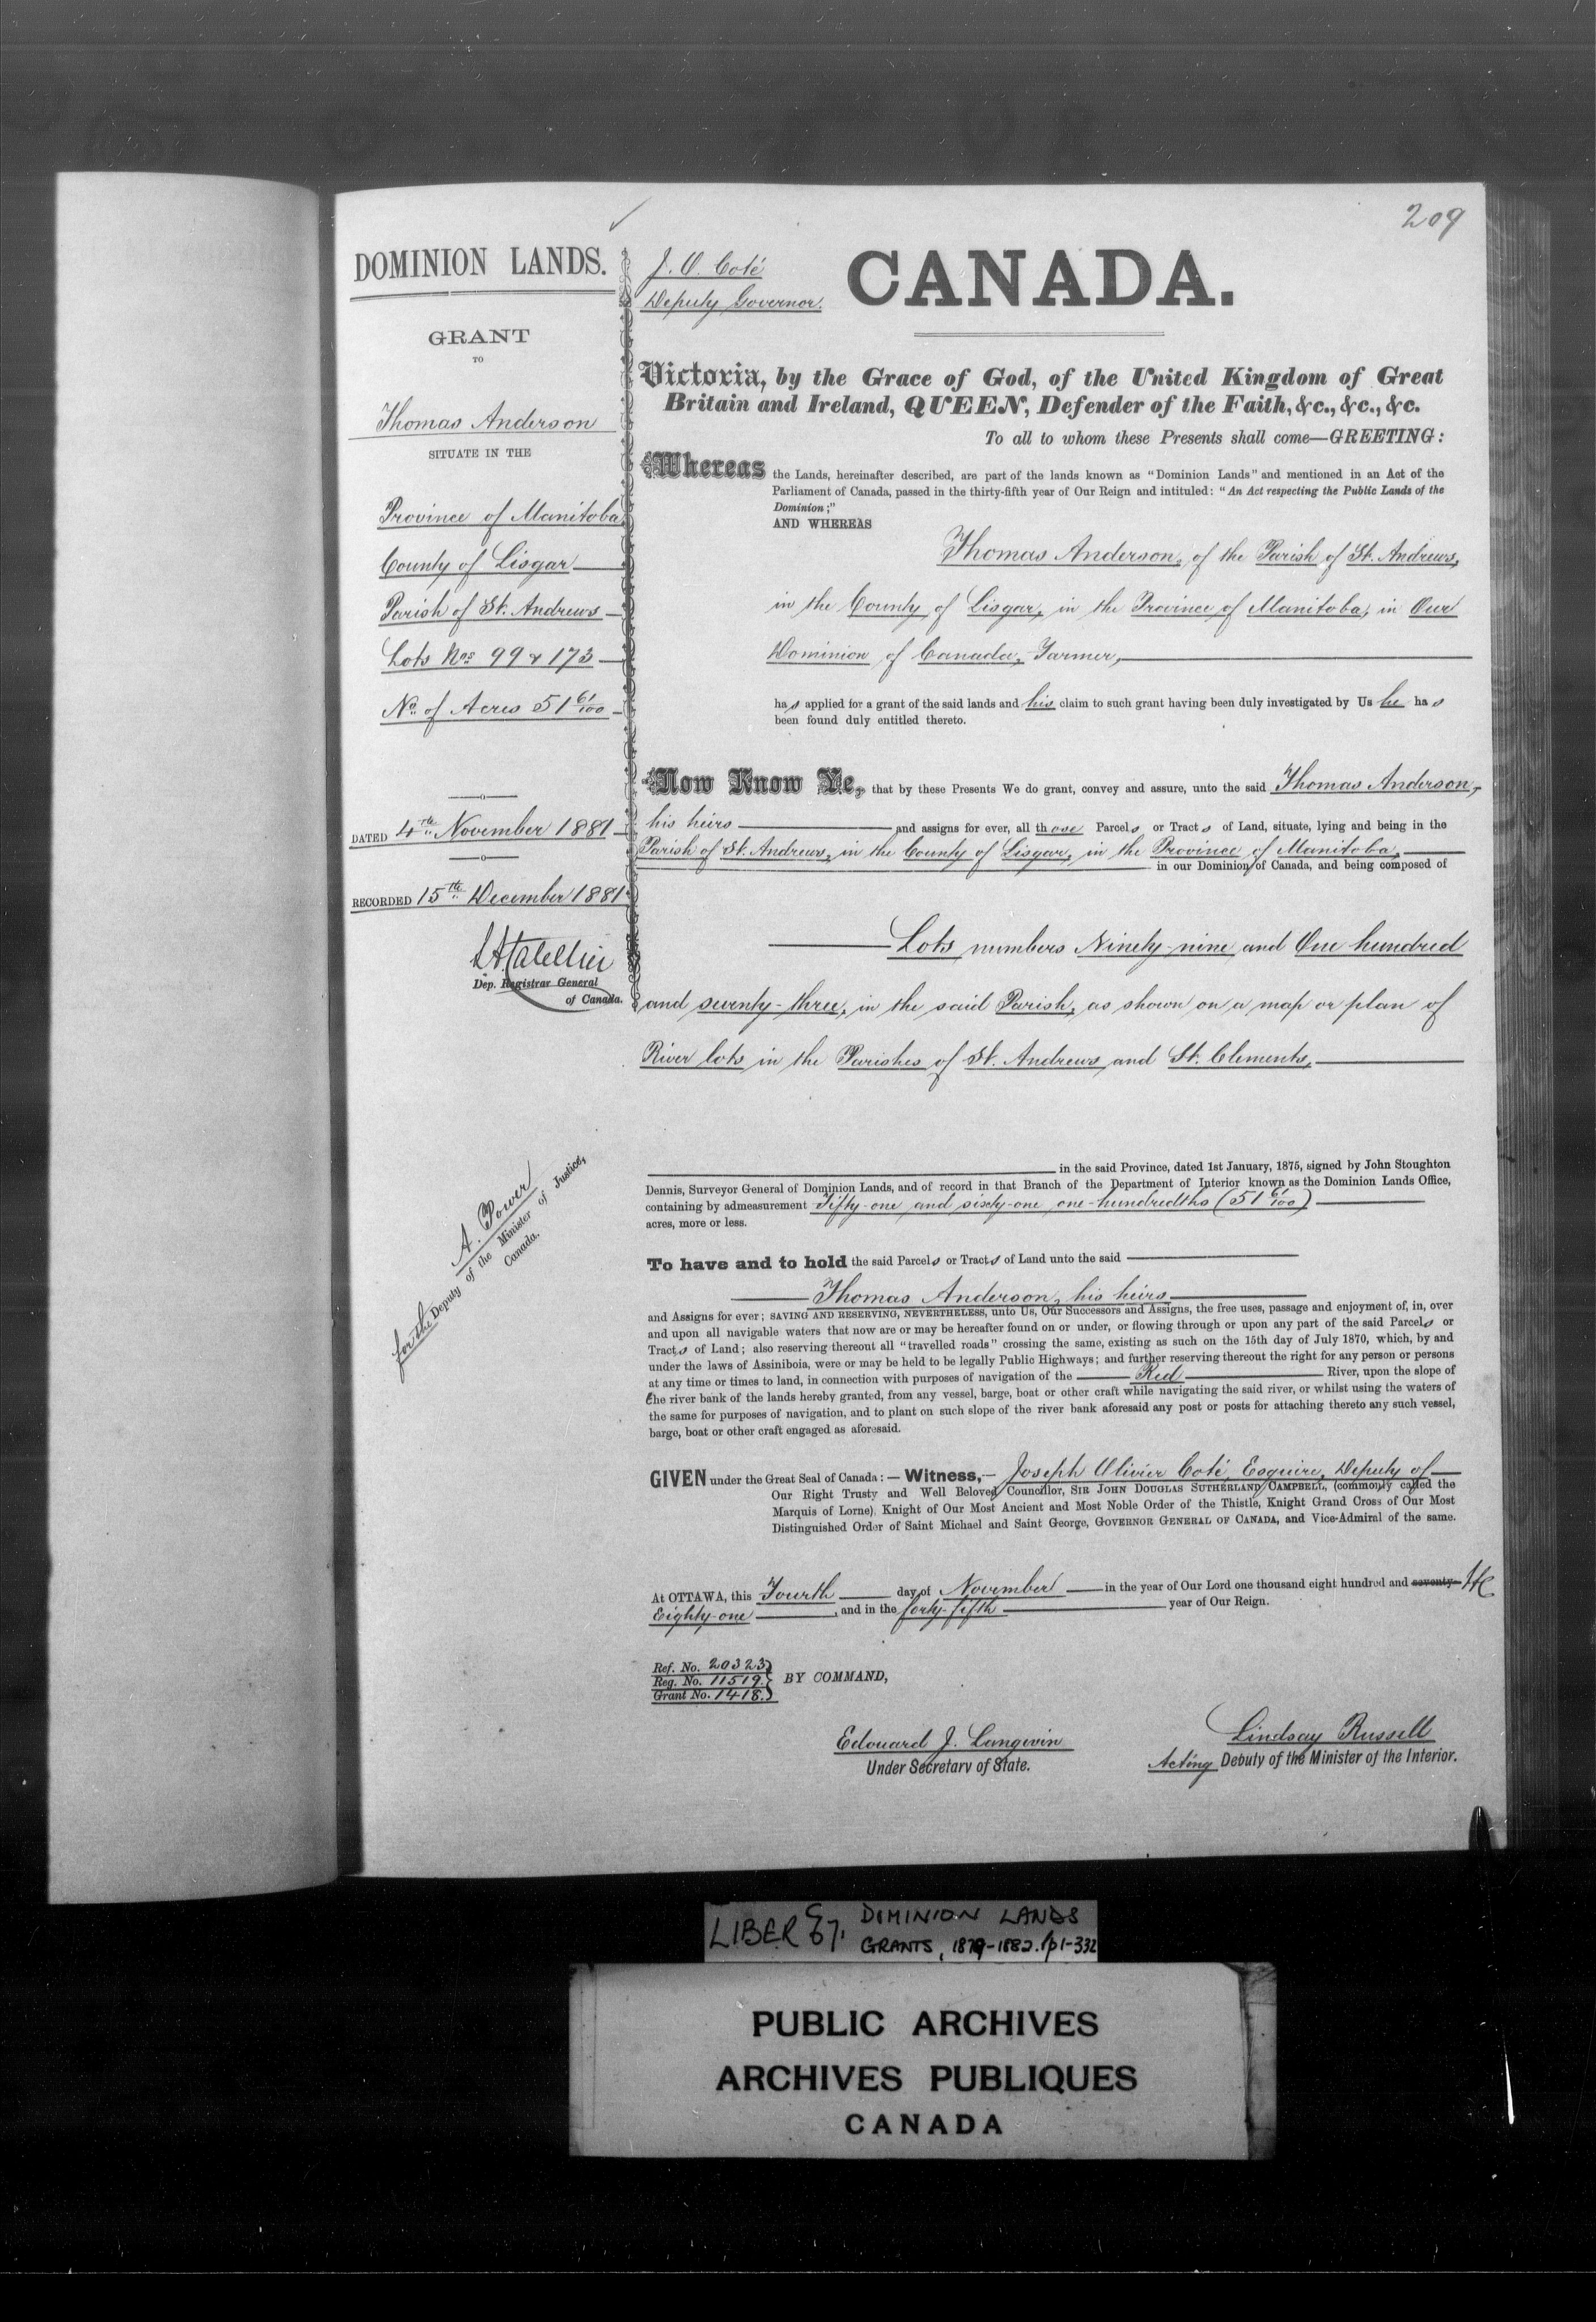 209
DOMINION LANDS.
GRANT
TO
Thomas Anderson
SITUATE IN THE
Province of Manitoba
County of Lisgar
Parish of St. Andrews
Lots Nos 99 & 173
No. of Acres 51 61/100
DATED 4th November 1881
RECORDED 15th December 1881
Dep. Registrar General
of Canada.
A. Power
for the Deputy of the Minister of Justice,
Canada.
J. O. Coté
Deputy Governor.
CANADA.
Victoria, by the Grace of God, of the United Kingdom of Great
Britain and Ireland, QUEEN, Defender of the Faith, &c., &c., &c.
To all to whom these Presents shall come—GREETING:
Whereas the Lands, hereinafter described, are part of the lands known as "Dominion Lands" and mentioned in an Act of the
Parliament of Canada, passed in the thirty-fifth year of Our Reign and intituled: "An Act respecting the Public Lands of the
Dominion;"
AND WHEREAS
Thomas Anderson, of the Parish of St. Andrews,
in the County of Lisgar, in the Province of Manitoba, in Our
Dominion of Canada, Farmer,
has applied for a grant of the said lands and his claim to such grant having been duly investigated by Us he has
been found duly entitled thereto.
Now Know Ye, that by these Presents We do grant, convey and assure, unto the said Thomas Anderson,
his heirs and assigns for ever, all those Parcels or Tracts of Land, situate, lying and being in the
Parish of St. Andrews, in the County of Lisgar, in the Province of Manitoba,
in our Dominion of Canada, and being composed of
Lots numbers Ninety-nine and One hundred
and seventy-three, in the said Parish, as shown on a map or plan of
River lots in the Parishes of St. Andrews and St. Clements,
in the said Province, dated 1st January, 1875, signed by John Stoughton
Dennis, Surveyor General of Dominion Lands, and of record in that Branch of the Department of Interior known as the Dominion Lands Office,
containing by admeasurement Fifty-one and sixty-one one-hundredths (51 61/100)
acres, more or less.
To have and to hold the said Parcels or Tracts of Land unto the said
Thomas Anderson, his heirs
and Assigns for ever; SAVING AND RESERVING, NEVERTHELESS, unto Us, Our Successors and Assigns, the free uses, passage and enjoyment of, in, over
and upon all navigable waters that now are or may be hereafter found on or under, or flowing through or upon any part of the said Parcels or
Tracts of Land; also reserving thereout all "travelled roads" crossing the same, existing as such on the 15th day of July 1870, which, by and
under the laws of Assiniboia, were or may be held to be legally Public Highways; and further reserving thereout the right for any person or persons
at any time or times to land, in connection with purposes of navigation of the Red River, upon the slope of
the river bank of the lands hereby granted, from any vessel, barge, boat or other craft while navigating the said river, or whilst using the waters of
the same for purposes of navigation, and to plant on such slope of the river bank aforesaid any post or posts for attaching thereto any such vessel,
barge, boat or other craft engaged as aforesaid.
GIVEN under the Great Seal of Canada:—Witness,— Joseph Olivier Coté, Esquire, Deputy of
Our Right Trusty and Well Beloved Councillor, SIR JOHN DOUGLAS SUTHERLAND CAMPBELL, (commonly called the
Marquis of Lorne), Knight of Our Most Ancient and Most Noble Order of the Thistle, Knight Grand Cross of Our Most
Distinguished Order of Saint Michael and Saint George, GOVERNOR GENERAL OF CANADA, and Vice-Admiral of the same.
At OTTAWA, this Fourth day of November in the year of Our Lord one thousand eight hundred and seventy-
Eighty-one, and in the forty-fifth year of Our Reign.
Ref. No. 20323
Reg. No. 11519.
Grant No. 1418.
BY COMMAND,
Edouard J. Langevin
Under Secretary of State.
Lindsay Russell
Acting Deputy of the Minister of the Interior.
LIBER 67. DOMINION LANDS
GRANTS, 1879-1882. pp 1-332
PUBLIC ARCHIVES
ARCHIVES PUBLIQUES
CANADA